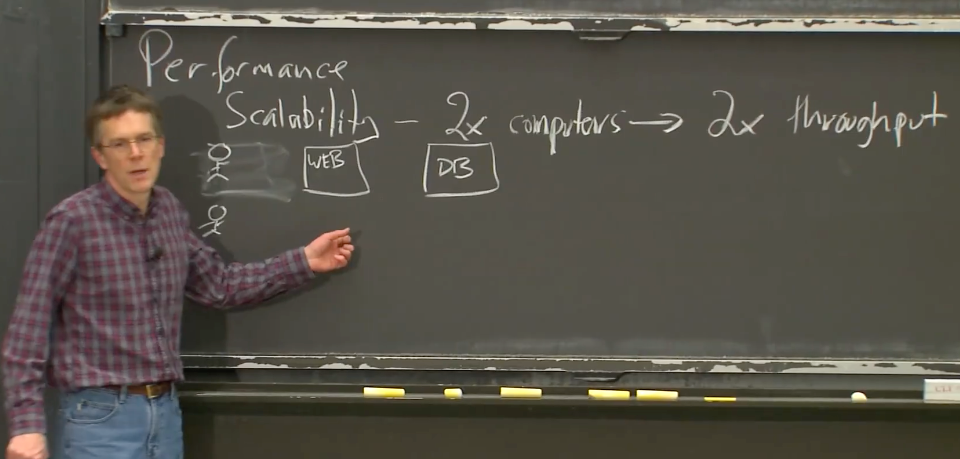 Performance
Scalability – 2x computers → 2x throughput
WEB DB